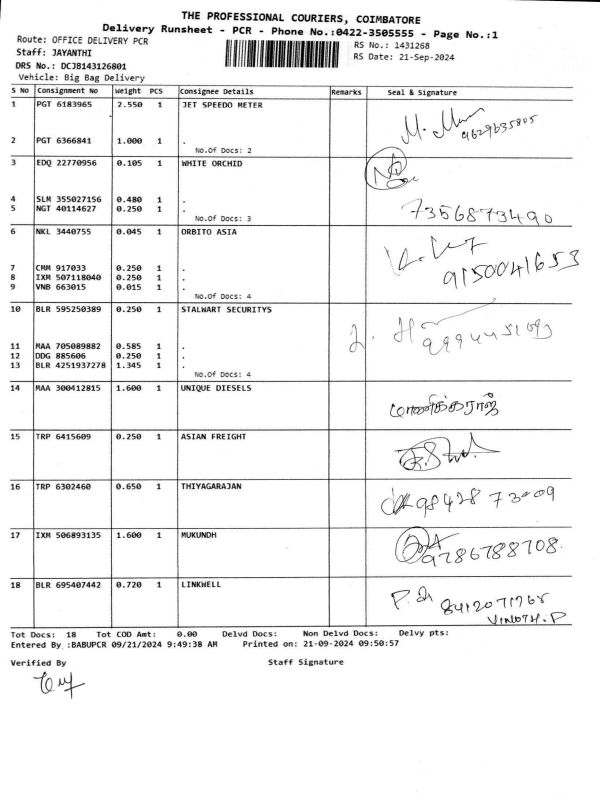 THE PROFESSIONAL COURIERS, COIMBATORE
Delivery Runsheet - PCR - Phone No.:0422-3505555 - Page No.:1
Route: OFFICE DELIVERY PCR
RS No.: 1431268
Staff: JAYANTHI
RS Date: 21-Sep-2024
DRS No.: DCJB143126801
Vehicle: Big Bag Delivery
S No Consignment No Weight PCS Consignee Details Remarks Seal & Signature
1 PGT 6183965 2.550 1 JET SPEEDO METER
9629635805
2 PGT 6366841 1.000 1 .
No.Of Docs: 2
3 EDQ 22770956 0.105 1 WHITE ORCHID
4 SLM 355027156 0.480 1 .
5 NGT 40114627 0.250 1 .
7356873490
No.Of Docs: 3
6 NKL 3440755 0.045 1 ORBITO ASIA
7 CMM 917033 0.250 1 .
9150041653
8 IXM 507118040 0.250 1 .
9 VNB 663015 0.015 1 .
No.Of Docs: 4
10 BLR 595250389 0.250 1 STALWART SECURITYS
11 MAA 705089882 0.585 1 .
12 DDG 885606 0.250 1 .
13 BLR 4251937278 1.345 1 .
No.Of Docs: 4
14 MAA 300412815 1.600 1 UNIQUE DIESELS
மாணிக்கராஜ்
15 TRP 6415609 0.250 1 ASIAN FREIGHT
16 TRP 6302460 0.650 1 THIYAGARAJAN
17 IXM 506893135 1.600 1 MUKUNDH
9786788708
18 BLR 695407442 0.720 1 LINKWELL
VINOTH.P
Tot Docs: 18 Tot COD Amt: 0.00 Delvd Docs: Non Delvd Docs: Delvy pts:
Entered By :BABUPCR 09/21/2024 9:49:38 AM Printed on: 21-09-2024 09:50:57
Verified By Staff Signature